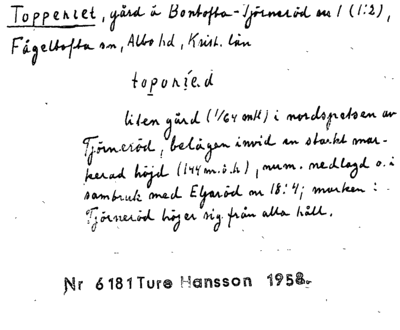 Topperiet, gård å Bontofta-Tjörneröd nr 1 (1:2),
Fågeltofta sn, Albo hd, Krist. län
liten gård (1/64 mtl) i nordspetsen av
Tjörneröd, belägen invid en starkt mar-
kerad höjd (144 m.ö.h), num. nedlagd o. i
sambruk med Eljaröd nr 18:4; marken i
Tjörneröd höjer sig från alla håll.
Nr 6181 Ture Hansson 1958.